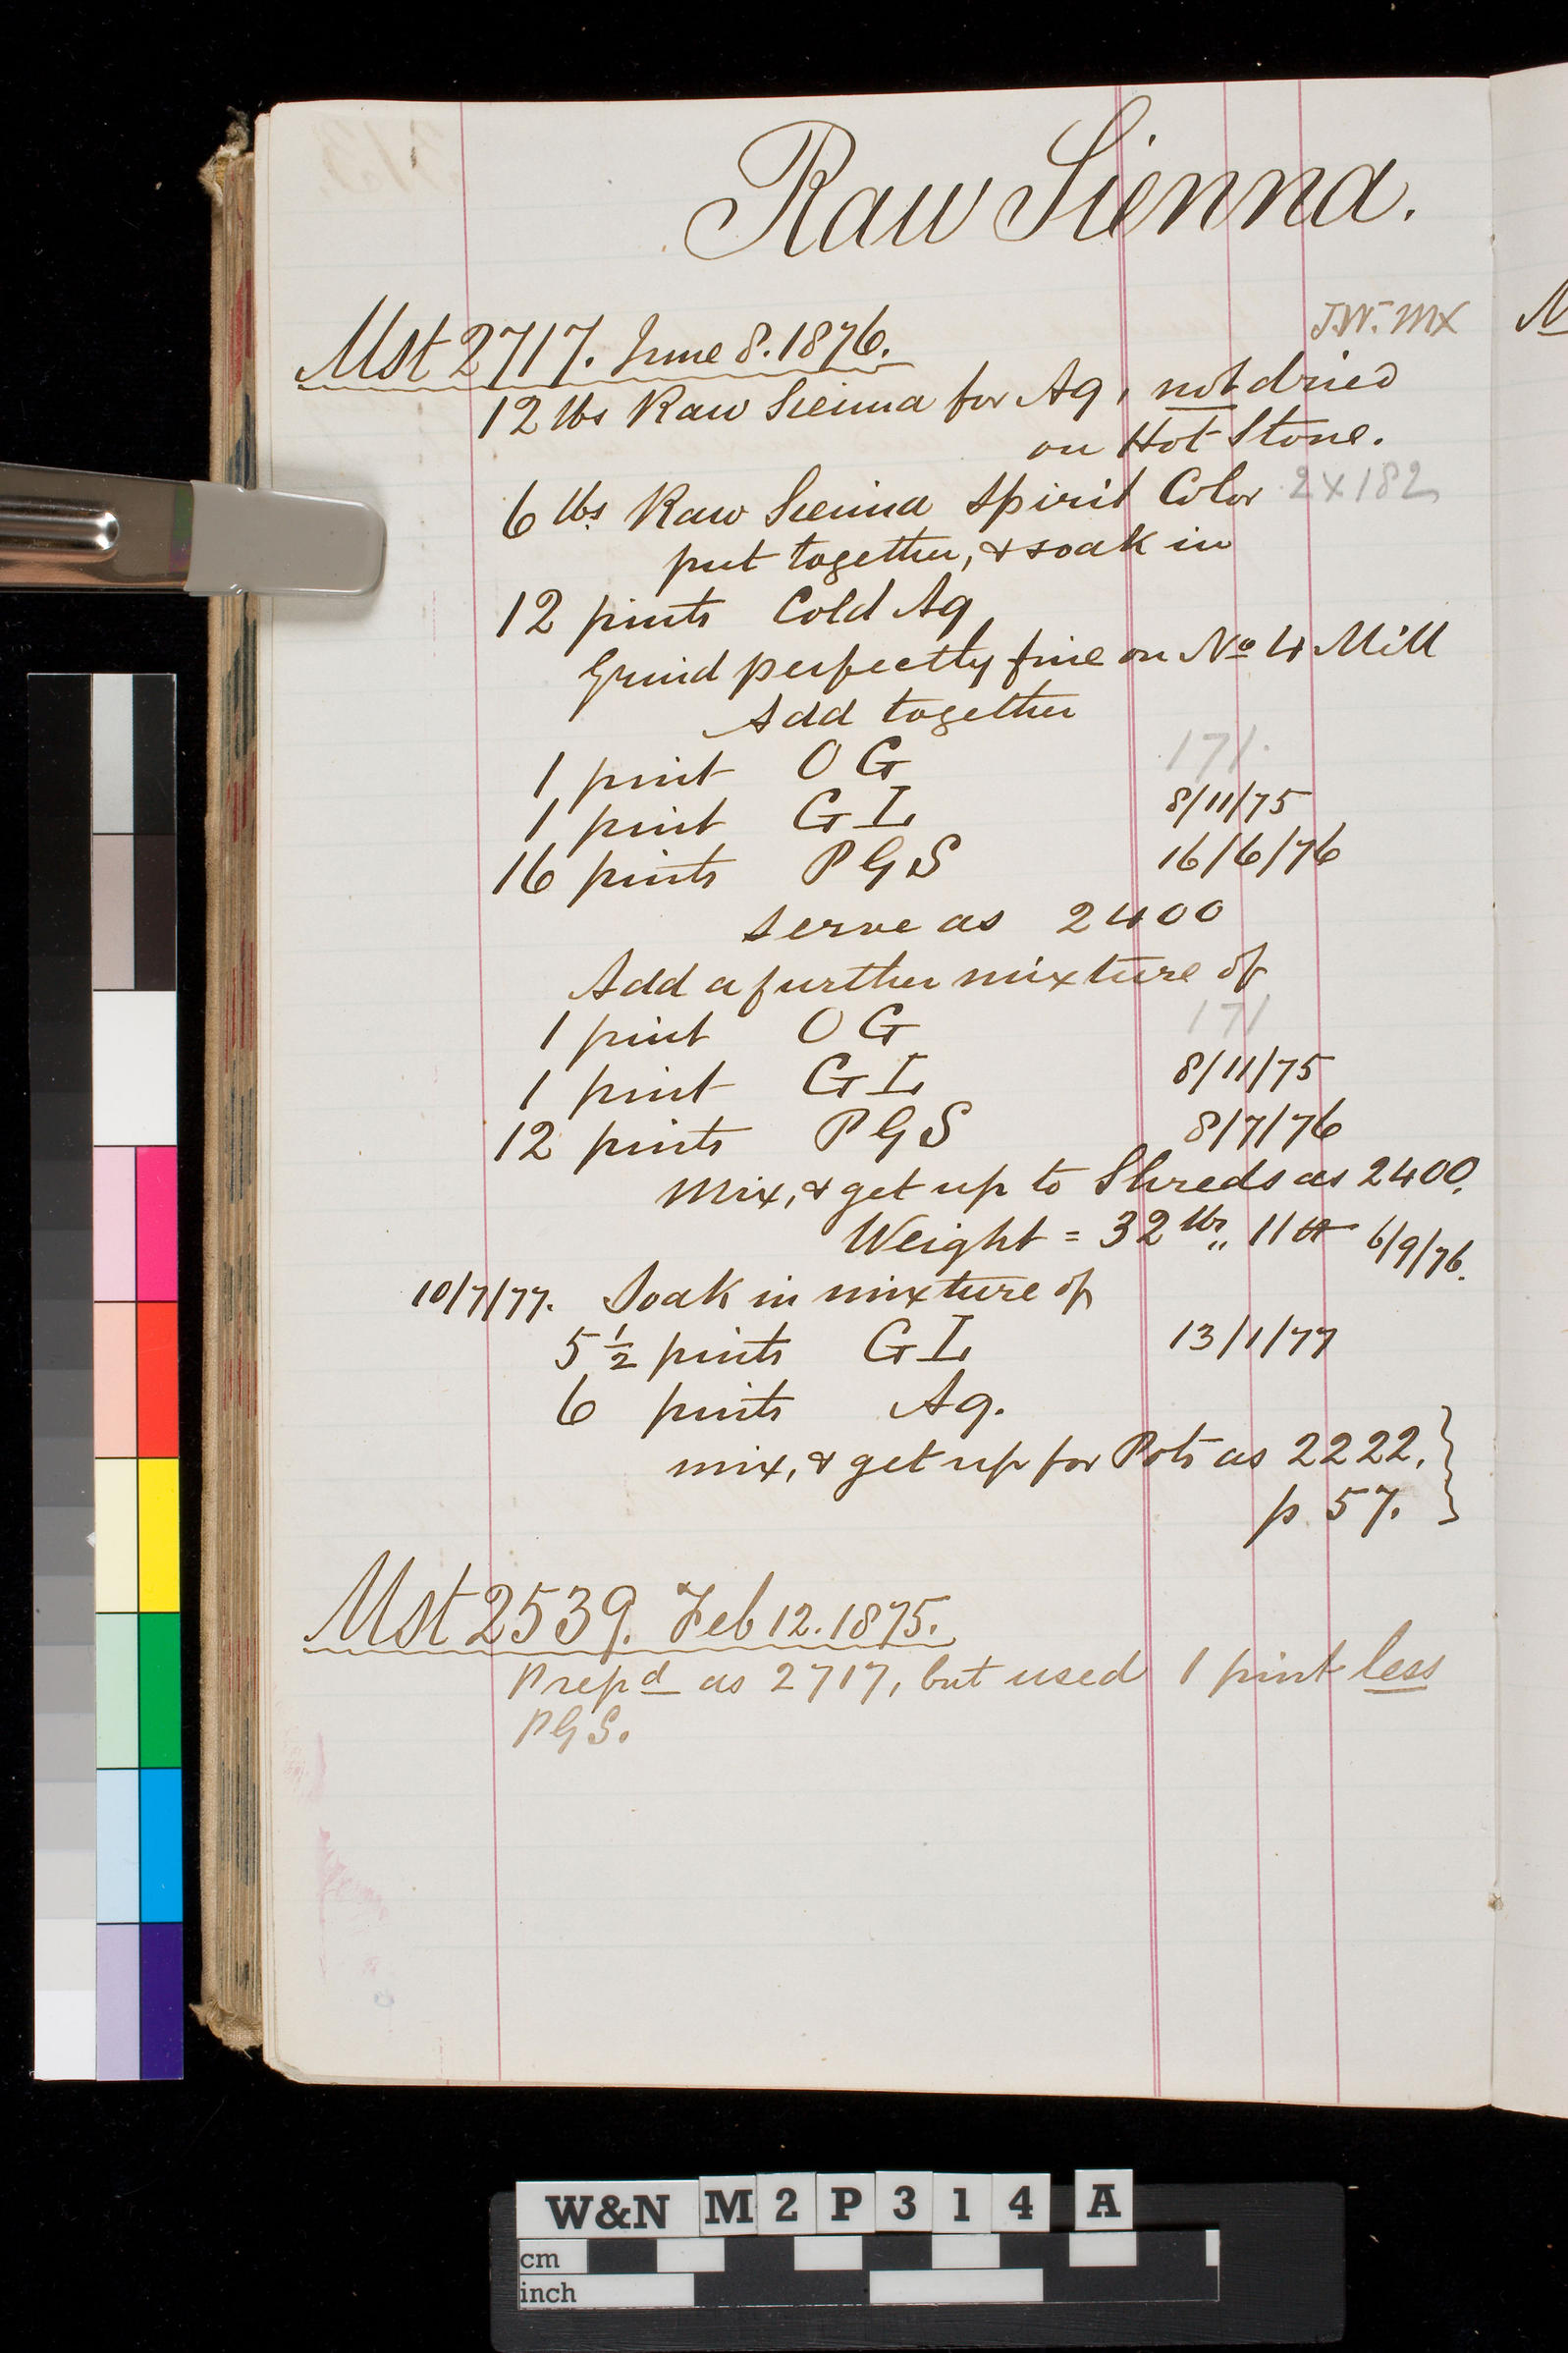 Raw Sienna.
J.W. Mx
Mst 2717. June 8. 1876.
12 lbs Raw Sienna for Aq, not dried
on Hot Stone.
6 lbs Raw Sienna Spirit Color 2 x 182
put together, & soak in
12 pints Cold Aq
Grind perfectly fine on No 4 Mill
Add together
1 pint O G 171.
1 pint G L 8/11/75
16 pints P G S 16/6/76
serve as 2400
Add a further mixture of
1 pint O G 171
1 pint G L 8/11/75
12 pints P G S 8/7/76
Mix, & get up to Shreds as 2400.
Weight = 32 lbs,, 11 6/9/76.
10/7/77. Soak in mixture of
5 1/2 pints G L 13/1/77
6 pints Aq.
mix, & get up for Pots as 2222. }
p. 57. }
Mst 2539. Feb 12. 1875.
Prepd as 2717, but used 1 pint less
P G S.
W&N M 2 P 3 1 4 A
cm
inch